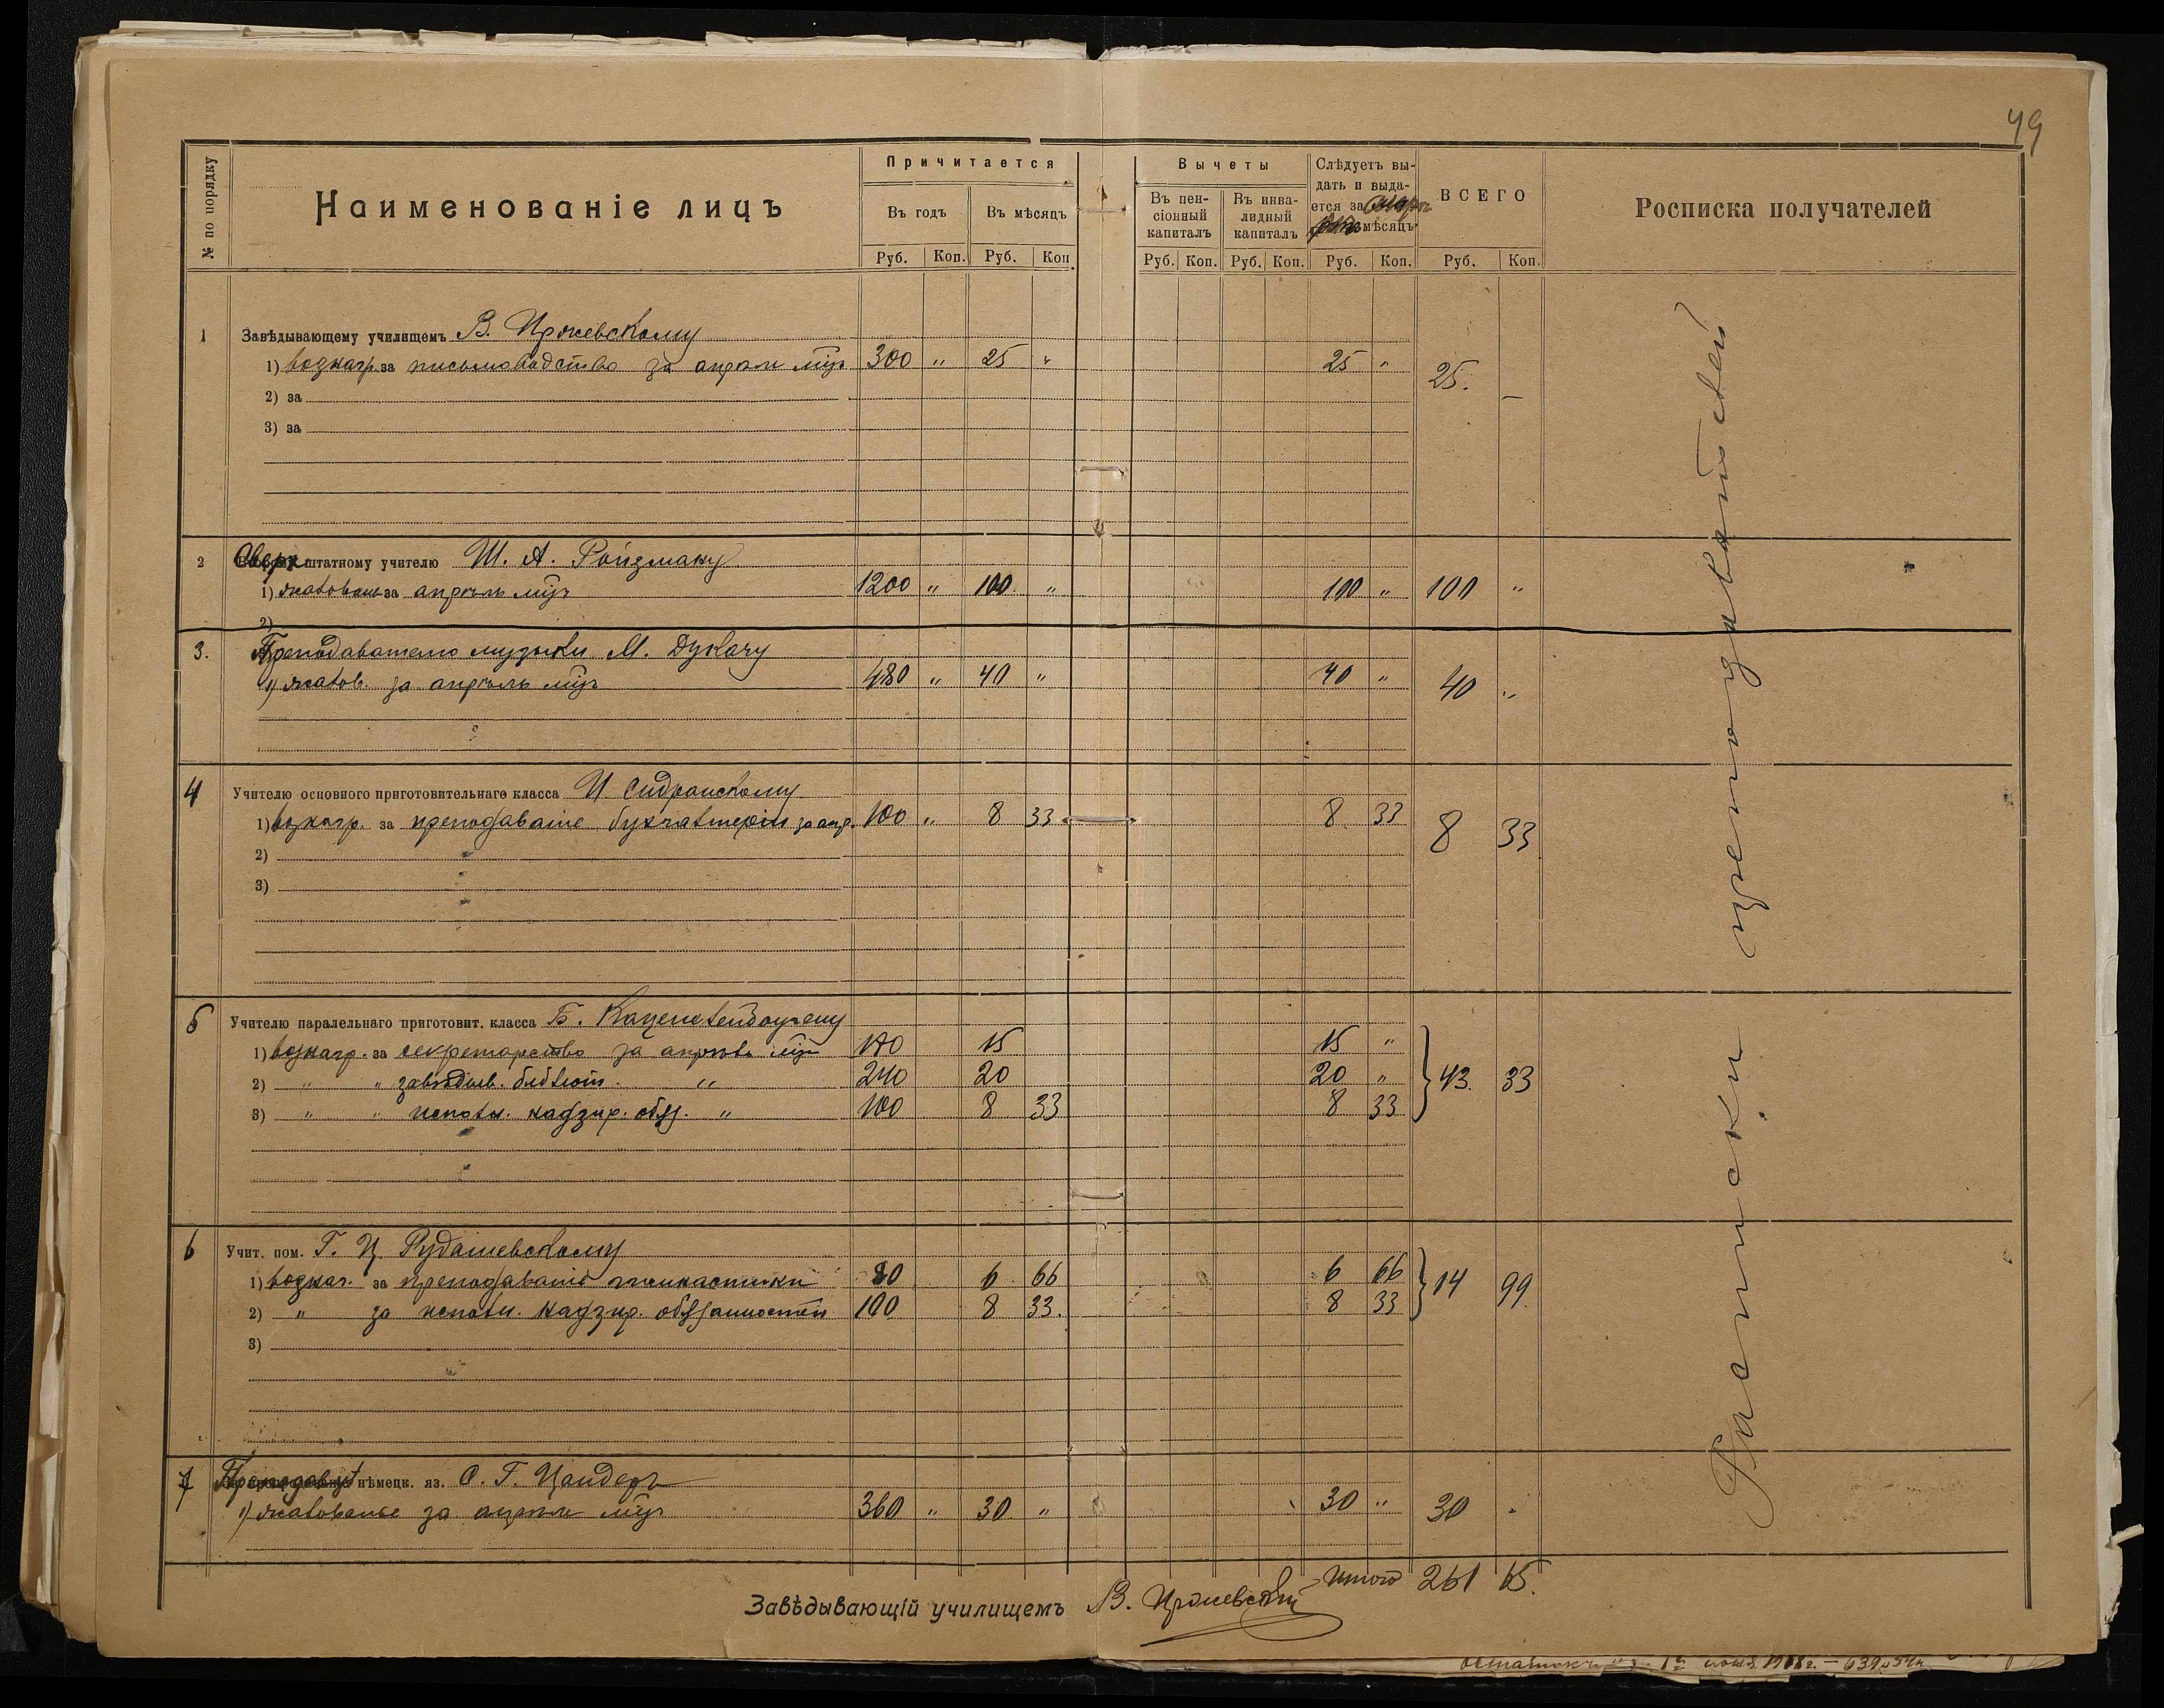 49
№ по порядку
Наименованіе лицъ
Причитается
Въ годъ
Въ мѣсяцъ
Руб. Коп. Руб. Коп
Вычеты
Въ пенсіонный капиталъ
Въ инвалидный капиталъ
Слѣдуетъ выдать и выдается за мѣсяцъ
ВСЕГО
Росписка получателей
Руб. Коп. Руб. Коп. Руб. Коп. Руб. Коп.
1 Завѣдывающему училищемъ В.
1) вознагр. за письмоводство за апрѣль м-цъ 300 „ 25 „ 25 „ 25. —
2) за
3) за
2 Сверхштатному учителю Ш. А. Ройзману
1) жалованье за апрѣль м-цъ 1200 „ 100 „ 100 „ 100 „
2)
3. Преподавателю музыки М. Дукачу
1) жалов. за апрѣль м-цъ 480 „ 40 „ 40 „ 40 „
4 Учителю основного приготовительнаго класса И Сидранскому
1) вознагр. за преподаваніе бухгалтеріи за апр. 100 „ 8 33 8 33 8 33
2)
3)
5 Учителю паралельнаго приготовит. класса Б.
1) вознагр. за секретарство за апрѣль м-цъ 180 15 15 „
2) „ „ завѣдыв. библіот. „ 240 20 20 „ 43. 33
3) „ „ исполн. надзир. обяз. „ 100 8 33 8 33
6 Учит. пом. Г. Ц. Рудашевскому
1) вознаг. за преподаваніе гимнастики 80 6 66 6 66 14 99
2) „ за исполн. надзир. обязанностей 100 8 33. 8 33
3)
7 Преподават нѣмецк. яз. О. Г. Цандеръ
1) жалованье за апрѣль м-цъ 360 „ 30 „ 30 „ 30 „
Росписки преподавателей
Итого 261 65.
Завѣдывающій училищемъ В.